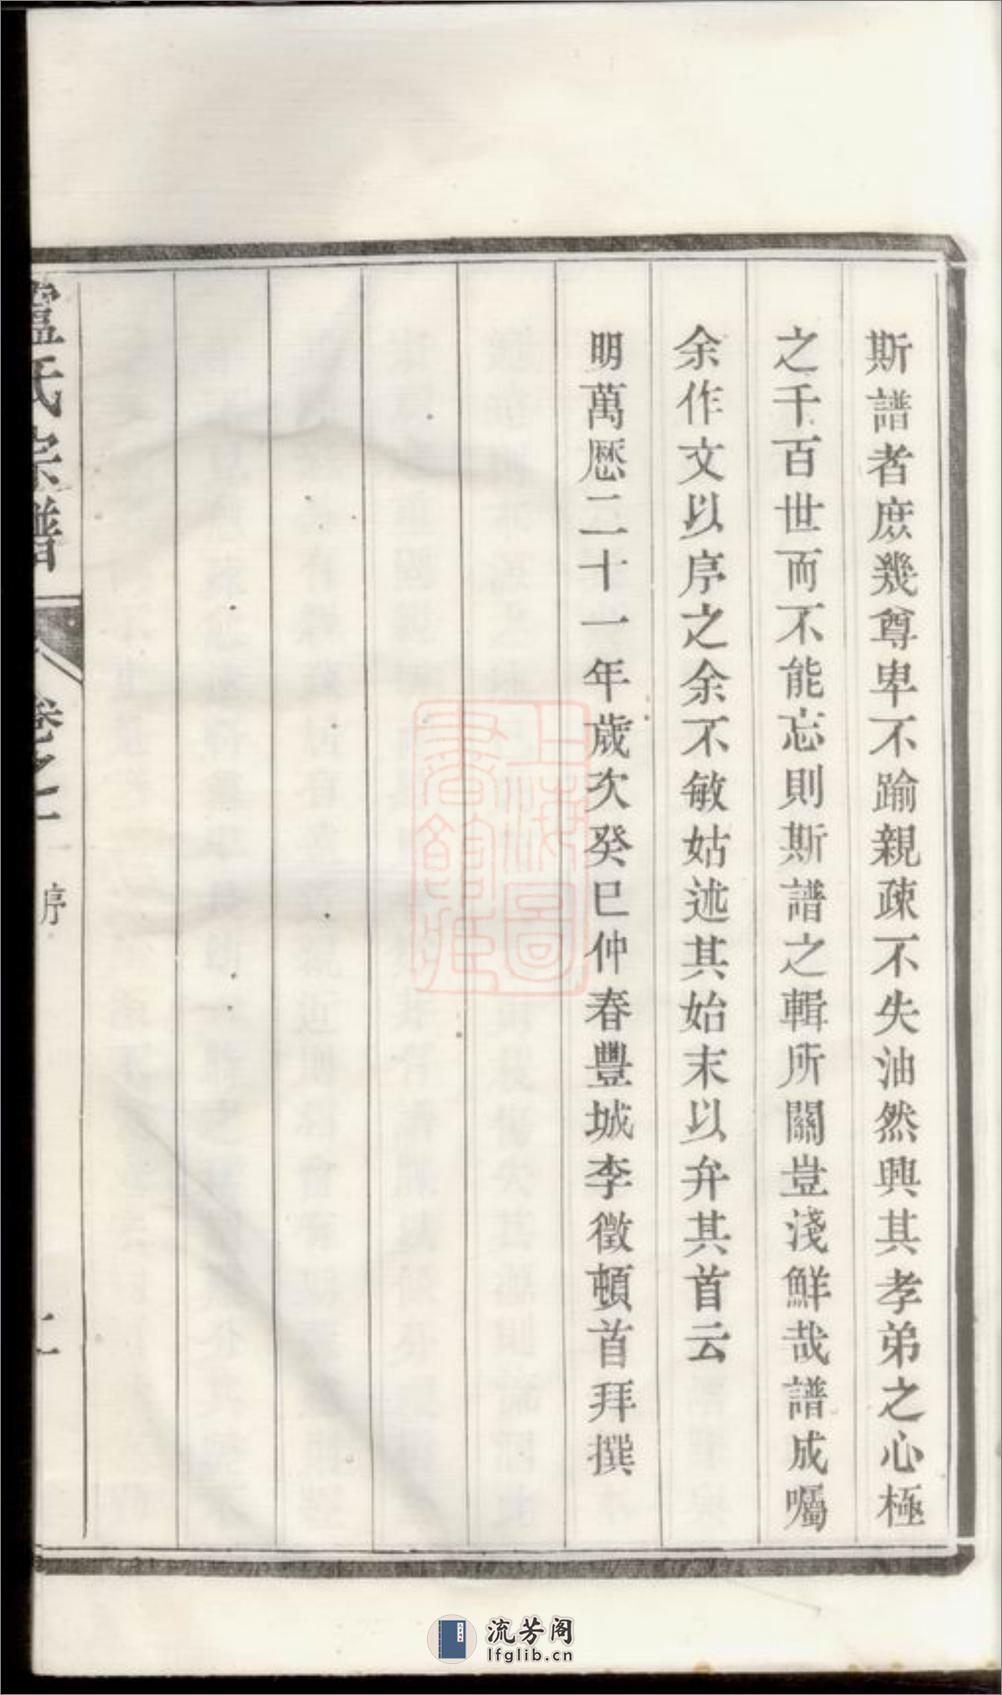 斯譜者庶幾尊卑不踰親疎不失油然興其孝弟之心極
之千百世而不能忘則斯譜之輯所關豈淺鮮哉譜成囑
余作文以序之余不敏姑述其始末以弁其首云
明萬厯二十一年歲次癸巳仲春豐城李徵頓首拜撰
盧氏宗譜
卷之一
序
上海圖書館藏
流芳阁
lfglib.cn